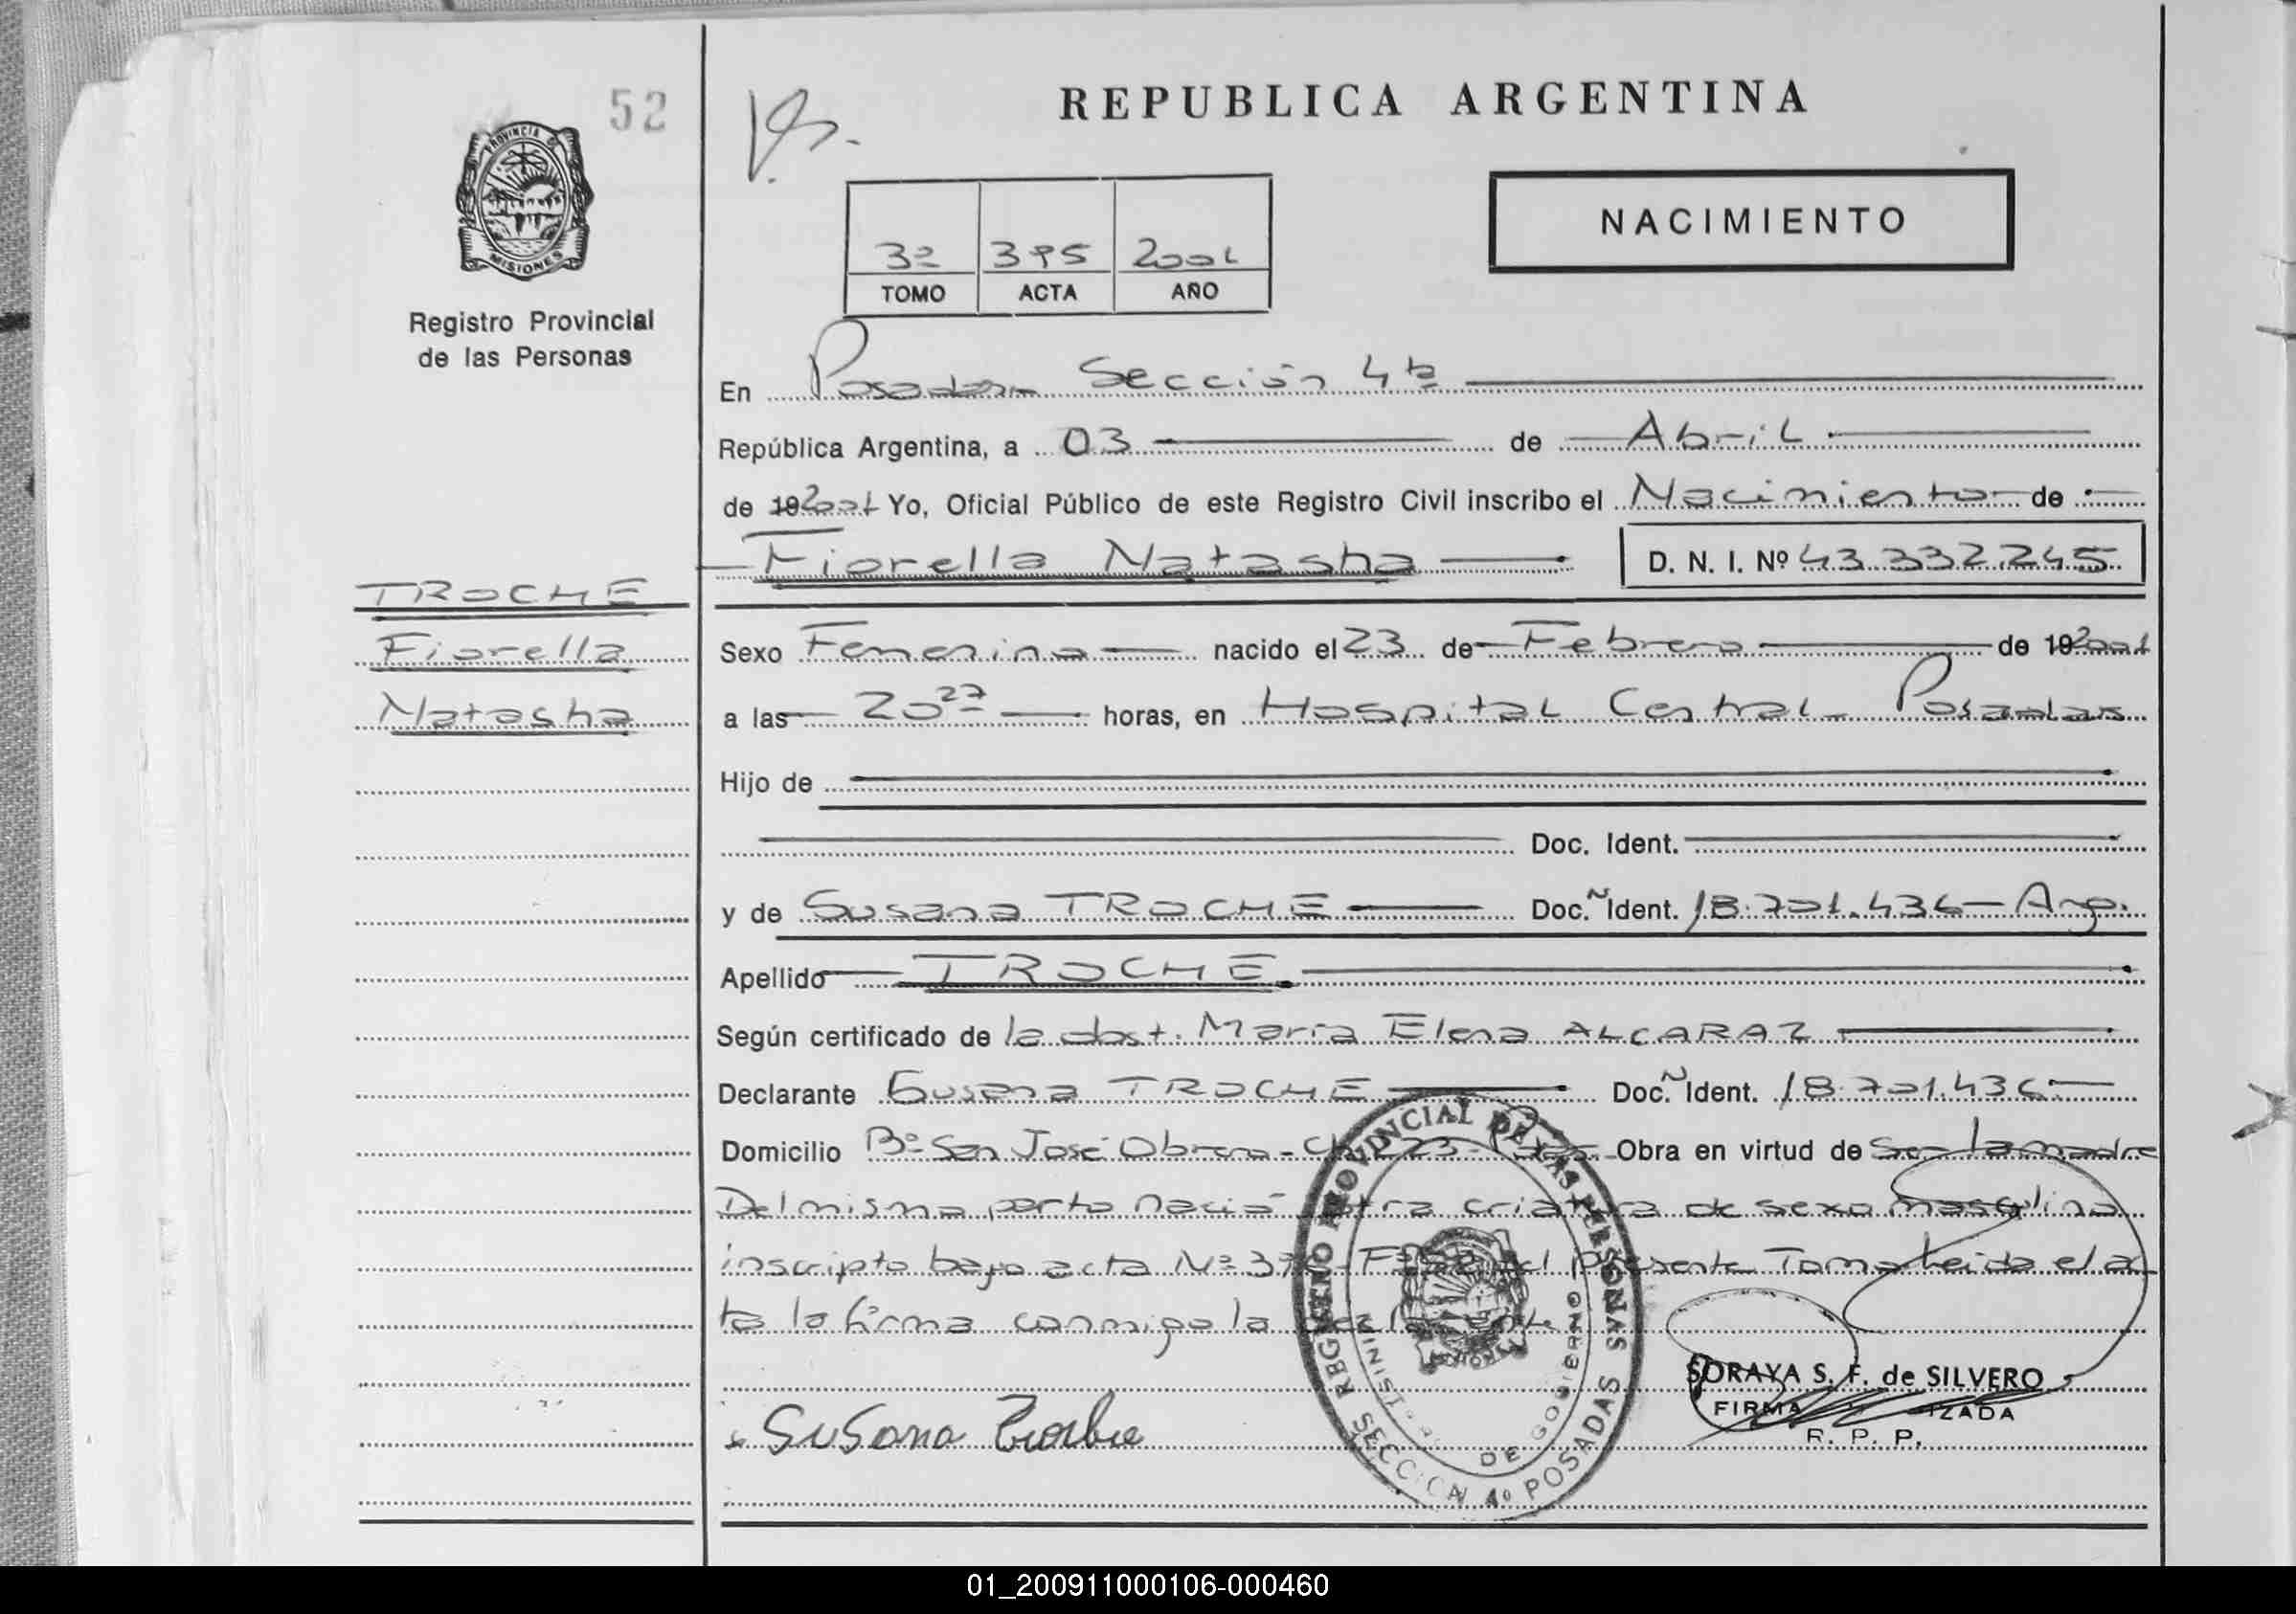 52
REPUBLICA ARGENTINA
PROVINCIA DE
MISIONES
NACIMIENTO
3º 395 2001
TOMO ACTA AÑO
Registro Provincial
de las Personas
En Posadas Sección 4ta
República Argentina, a 03 de Abril
de 192001 Yo, Oficial Público de este Registro Civil inscribo el Nacimiento de
Fiorella Natasha D. N. I. Nº 43.332.245
TROCHE
Fiorella
Natasha
Sexo Femenino nacido el 23 de Febrero de 192001
a las 20 27 horas, en Hospital Central Posadas
Hijo de
Doc. Ident.
y de Susana TROCHE Doc. Ident. 18.701.436 - Arg.
Apellido TROCHE
Según certificado de la obst. María Elena ALCARAZ
Declarante Susana TROCHE Doc. Ident. 18.701.436
Domicilio Bº San José Obrero - Ch. 223 - Obra en virtud de Ser la madre
Del mismo parto nació otra criatura de sexo masculino
inscripto bajo acta Nº del presente Tomo Leida el ac
ta la firma conmigo la declarante
Susana Troche
REGISTRO PROVINCIAL DE LAS PERSONAS
MINIST. DE GOBIERNO
SECCION 4º POSADAS
SORAYA S. F. de SILVERO
FIRMA
R. P. P.
01_200911000106-000460